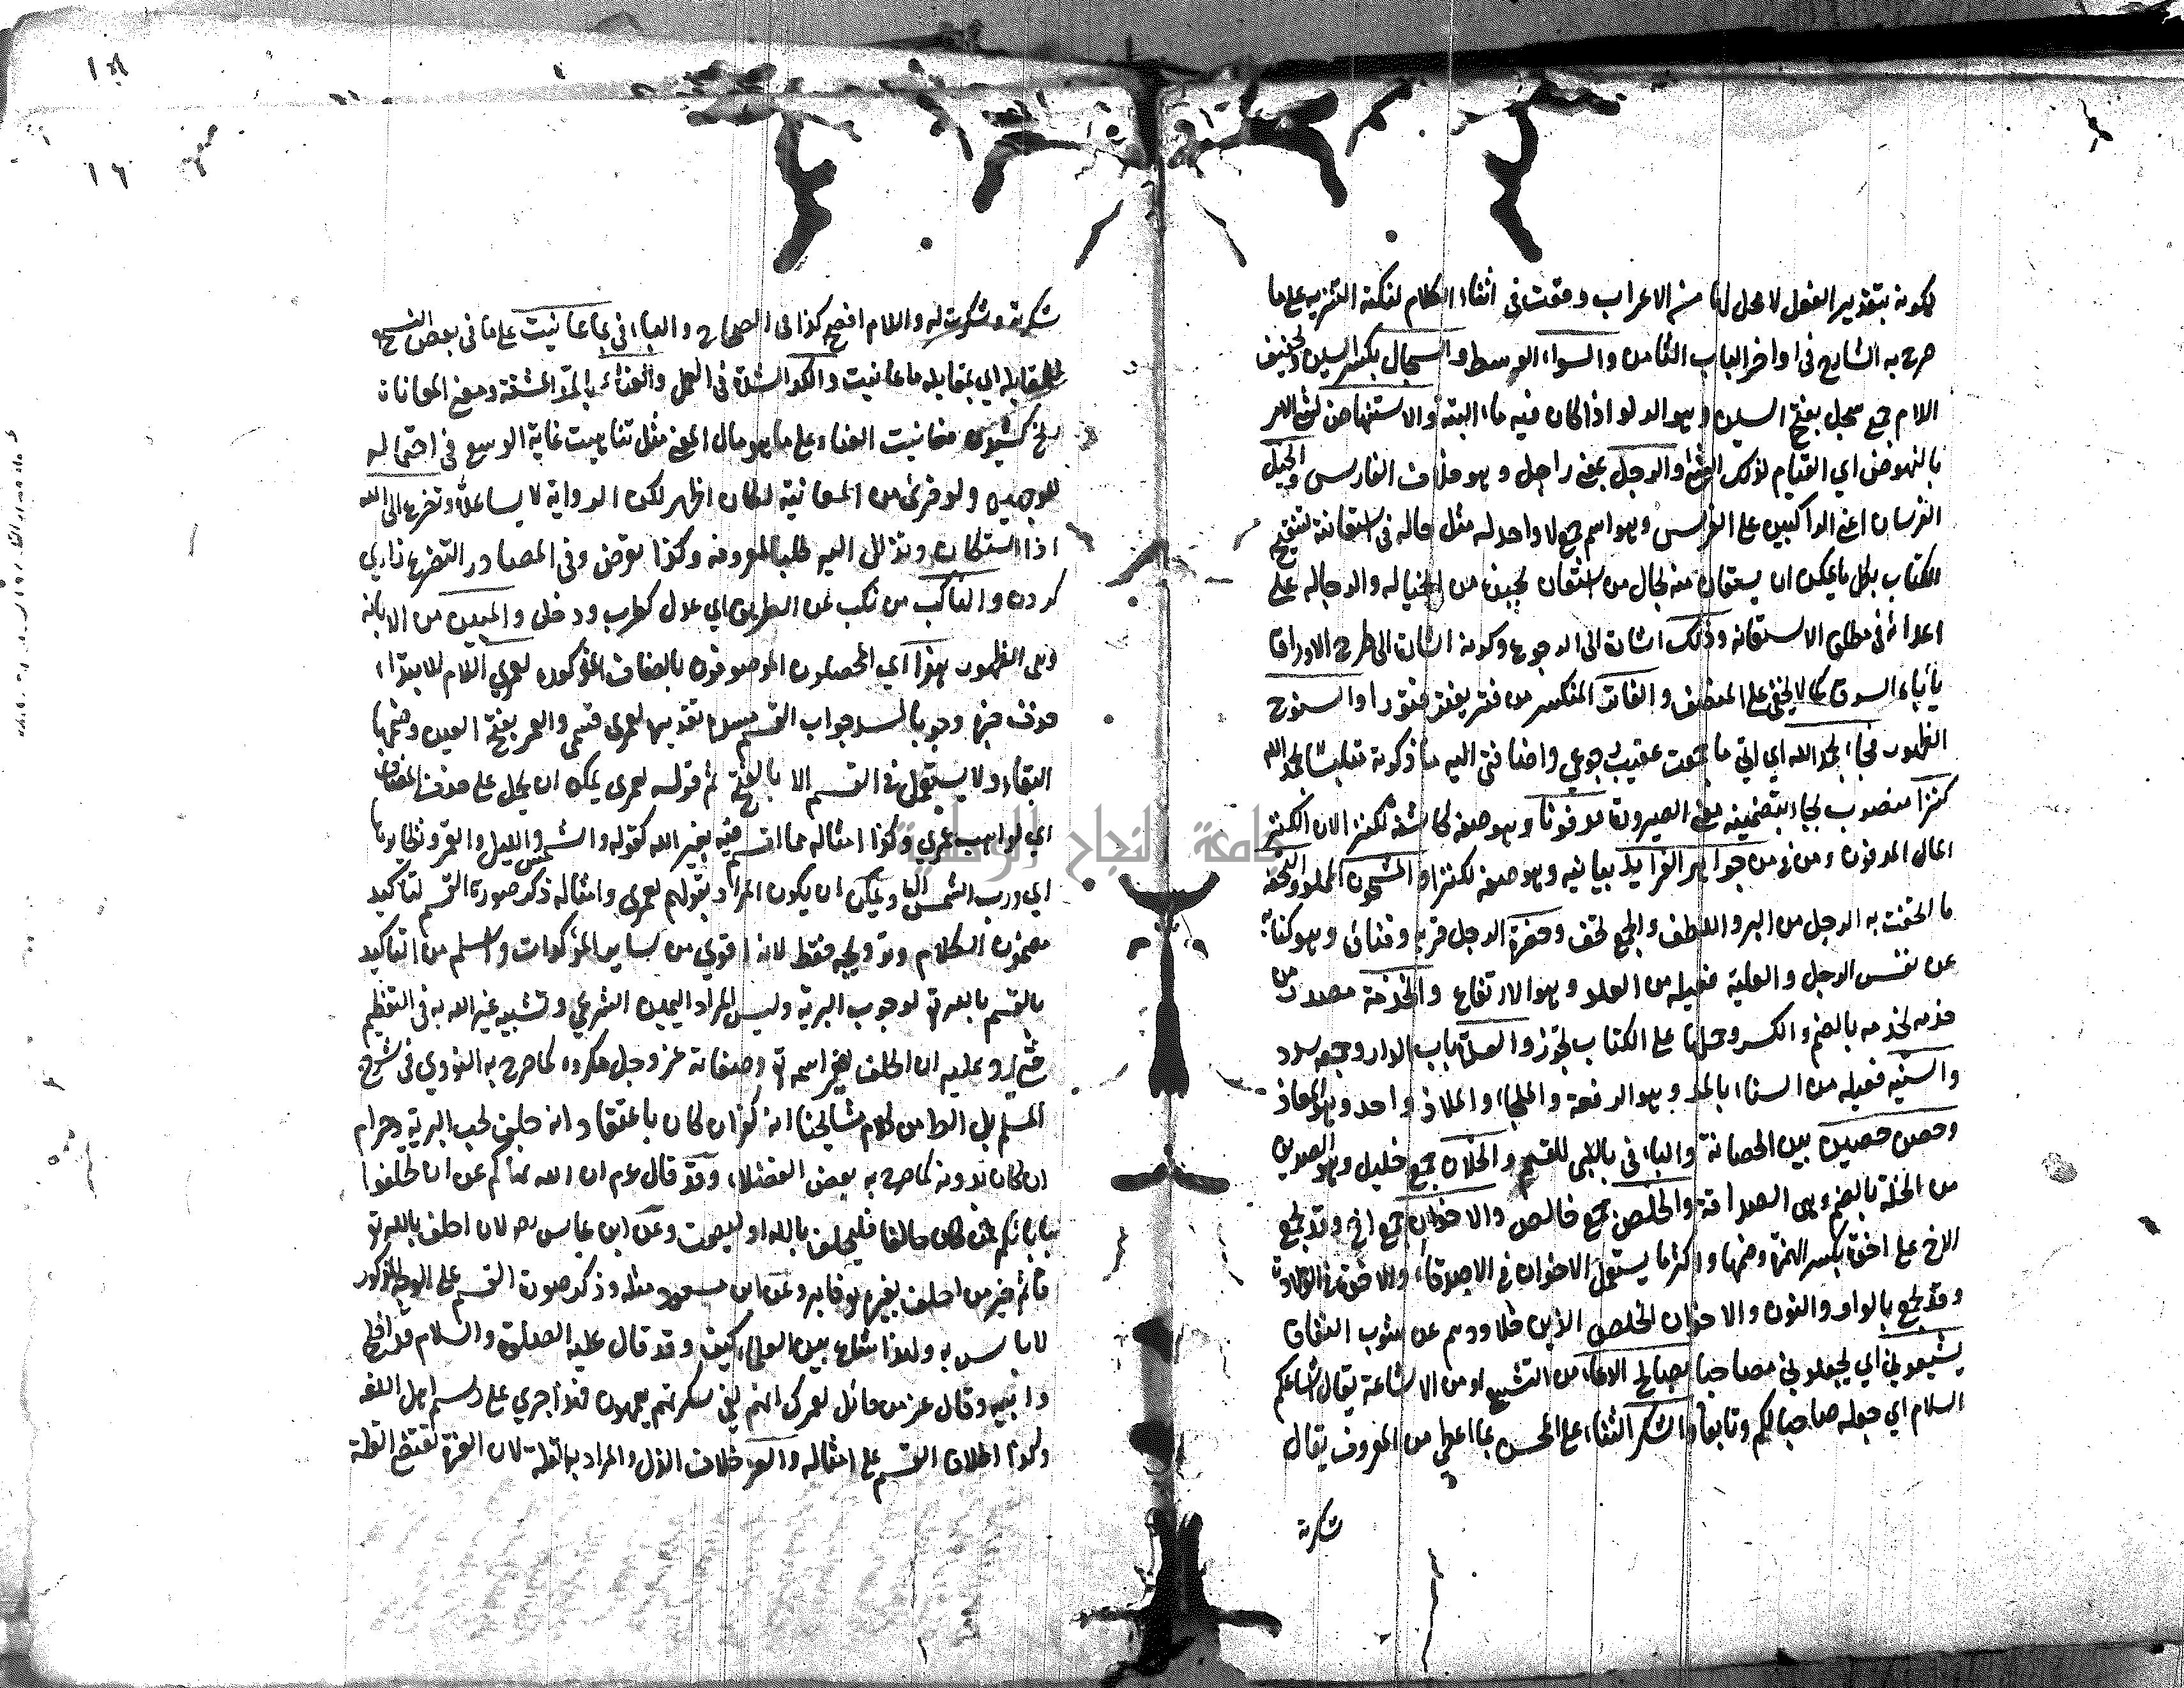 لكونه بتقدير القول لا محل لها من الاعراب وقعت في اثناء الكلام لنكتة التنزيه على ما
صرح به الشارح في اواخر الباب الثامن والسواء الوسط والسجال بكسر السين وتخفيف
اللام جمع سجل بفتح السين وهو الدلو اذا كان فيه ماء البتة والاستنهاض لشئ الامر
بالنهوض اي القيام لذلك الشئ والرجل بمعنى راجل وهو خلاف الفارس والخيل
الفرسان اعني الراكبين على الفرس وهو اسم جمع لا واحد له مثل حاله في استعانته
الكتاب بكل ما يمكن ان يستعان منه بحال من استعان بجيشه من الخيالة والرجالة على
اعدائه في مطلق الاستعانة وذلك اشارة الى الرجوع وكونه اشارة الى طرح الاوراق
يأباه السوق كما لا يخفى على المنصف والفاتر المنكسر من فتر يفتر فتورا والسنوح
الظهور فجاء بحمد الله اي اتى ما جمعت عقيب رجوعي واضافتي اليه ما ذكرته متلبسا بحمد الله
كنزا منصوب بجاء بتضمينه معنى الصيرورة مدفونا وهو صفة كاشفة لكنزا لان الكنز
المال المدفون ومن في من جواهر الفرايد بيانيه وهو صفة لكنزا والمشحون المملو والتحفة
ما اتحفت به الرجل من البر واللطف والجمع تحف وحضرة الرجل قربه وفنائه وهو كناية
عن نفس الرجل والعلية فعيلة من العلو وهو الارتفاع والخدمة مصدر من
خدمه يخدمه بالضم والكسر وحملها على الكتاب تجوز والسدة باب الدار وجمعه سدد
والسنية فعيلة من السناء بالمد وهو الرفعة والملجاء والملاذ واحد وهو المعاذ
وحصن حصين بين الحصانة والباء في بالنبي للقسم والخلان جمع خليل وهو الصديق
من الخلة بالضم وهي الصداقة والخلص جمع خالص والاخوان جمع اخ وقد يجمع
الاخ على اخوة بكسر الهمزة وضمها واكثر ما يستعمل الاخوان في الاصدقاء والاخوة في الولادة
وقد يجمع بالواو والنون والاخوان الخلص الذين خلا ودهم عن شوب النفاق
يشيعوني اي يجعلوني مصاحبا بصالح الدعاء من التشييع او من الاشاعة يقال اشاعكم
السلام اي جعله صاحبا لكم وتابعا والشكر الثناء على المحسن بما اعطى من المعروف يقال
شكرته
١٨
١٦
شكرته وشكرت له واللام افصح كذا في الصحاح والباء في بما عانيت على ما في بعض النسخ
للمقابلة اي بمقابلة ما عانيت والكد الشدة في العمل والعناء بالمد المشقة ومعنى المعاناة
كشيدن فعانيت العناء على ما هو مال المعنى مثل تناهيت غاية الوسع في احتماله
ولو قرئ من المعانية لكان اظهر لكن الرواية لا يساعده وتضرع الى الله
اذا استكان وتذلل اليه طلبا لمعروفه وكذا تعرض وفي المصادر التضرع زاري
كردن والناكب من نكب عن الطريق اي عدل كطرب ودخل والمبين من الابانه
وهي الظهور هذا اي المحصلون الموصوفون بالصفات المذكورة لعمري اللام للابتداء
حذف خبره وجوبا لسد جواب القسم مسده تقديره لعمري قسمي والعمر بفتح العين وضمها
البقاء ولا يستعمل في القسم الا بالفتح ثم قوله لعمري يمكن ان يحمل على حذف المضاف
اي لواهب عمري وكذا امثاله مما اقسم فيه بغير الله كقوله والشمس والليل والقمر ونظايرها
اي ورب الشمس الخ ويمكن ان يكون المراد بقولهم لعمري وامثاله ذكر صورة القسم لتأكيد
مضمون الكلام وترويجه فقط لانه اقوي من ساير المؤكدات واسلم من التأكيد
بالقسم بالله تعالى لوجوب البر به وليس المراد اليمين الشرعي وتشبيه غير الله به في التعظيم
حتى يرد عليه ان الحلف بغير اسمه تع وصفاته عز وجل مكروه كما صرح به النووي في شرح
المسلم بل الظاهر من كلام مشايخنا انه كفر ان كان باعتقاد انه حلف يجب البر به وحرام
ان كان بدونه كما صرح به بعض الفضلاء وقد قال عم ان الله ينهاكم عن ان تحلفوا
بابائكم فمن كان حالفا فليحلف بالله او ليصمت وعن ابن عباس رضه لان احلف بالله تع
فآثم خير من احلف بغيره فابر وعن ابن مسعود مثله وذكر صورة القسم على الوجه المذكور
لا باس به ولهذا شاع بين العلماء كيف وقد قال عليه الصلوة والسلام قد افلح
وابيه وقال عز من قائل لعمرك انهم لفي سكرتهم يعمهون فهذا جري على رسم اهل اللغة
وكذا اطلاق القسم على امثاله والعز خلاف الذل والمراد به القلة لان العزة تقتضي القلة